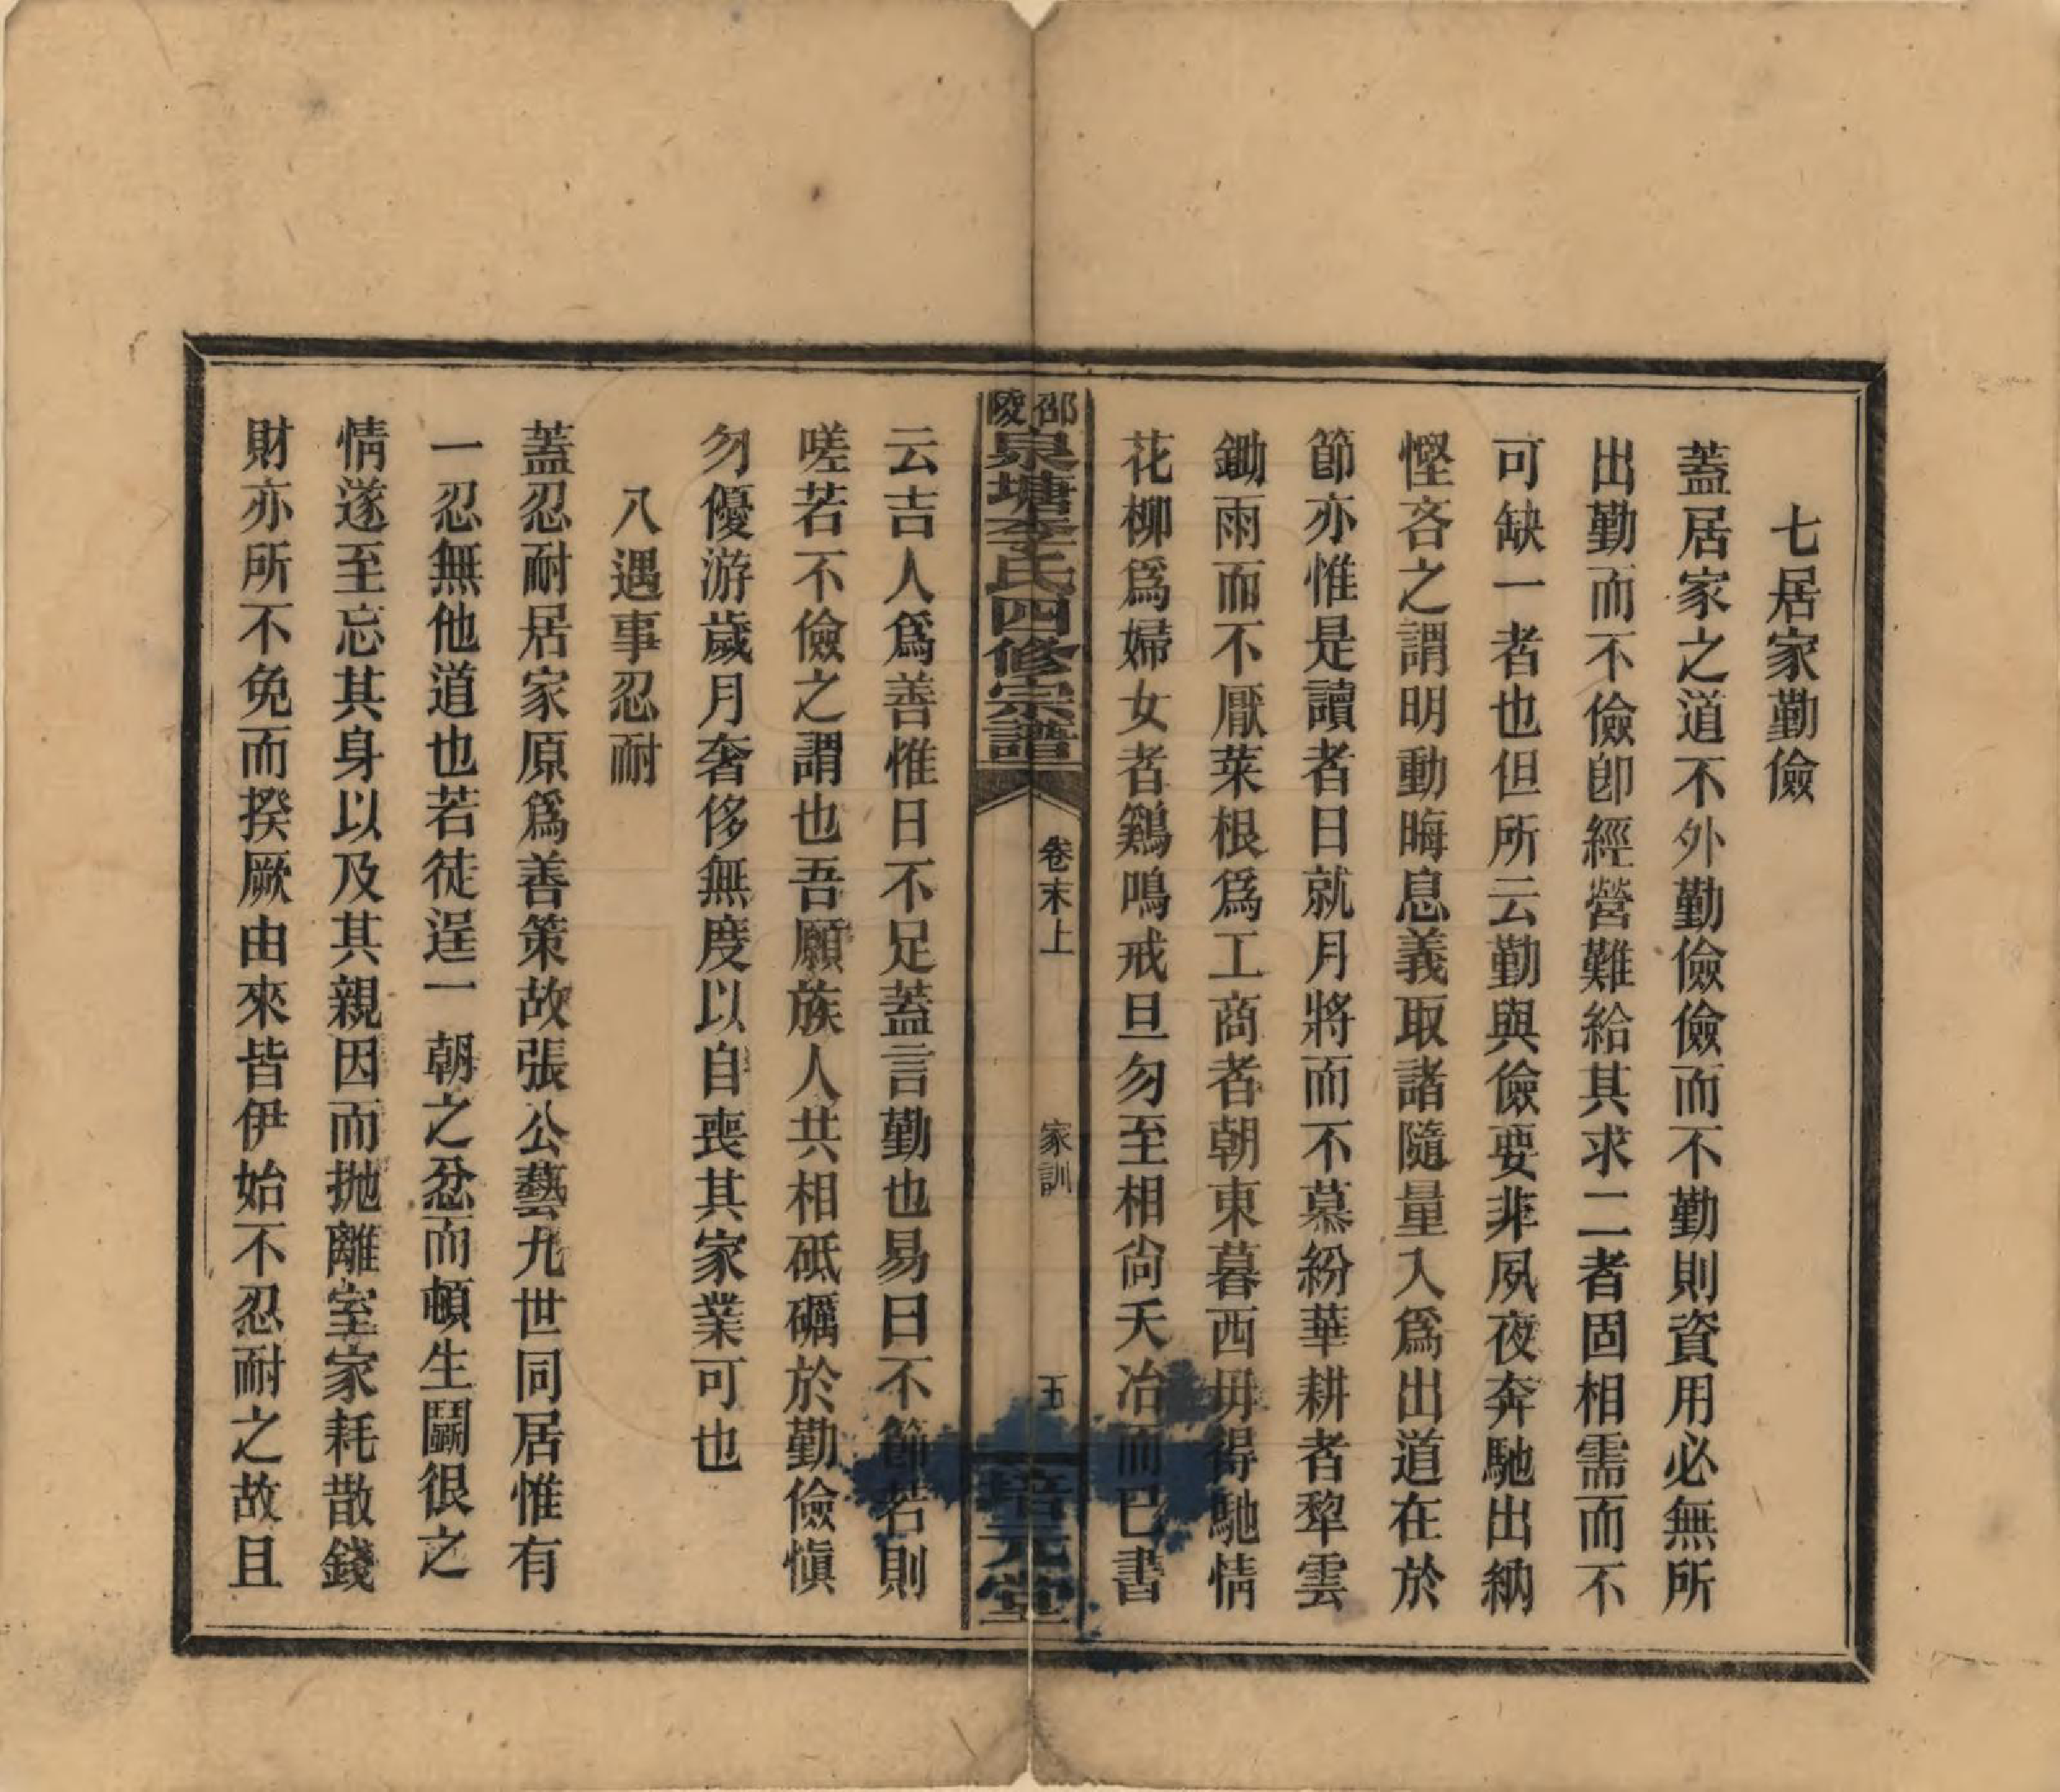 七居家勤儉
蓋居家之道不外勤儉儉而不勤則資用必無所
出勤而不儉卽經營難給其求二者固相需而不
可缺一者也但所云勤與儉要非夙夜奔馳出納
慳吝之謂明動晦息義取諸隨量入爲出道在於
節亦惟是讀者日就月將而不慕紛華耕者犂雲
鋤雨而不厭菜根爲工商者朝東暮西毋得馳情
花柳爲婦女者鷄鳴戒旦勿至相尙夭冶而已書
邵陵
泉塘李氏四修宗譜
卷末上
家訓
五
培元堂
云吉人爲善惟日不足蓋言勤也易曰不節若則
嗟若不儉之謂也吾願族人共相砥礪於勤儉愼
勿優游歲月奢侈無度以自喪其家業可也
八遇事忍耐
蓋忍耐居家原爲善策故張公藝九世同居惟有
一忍無他道也若徒逞一朝之忿而頓生鬬很之
情遂至忘其身以及其親因而抛離室家耗散錢
財亦所不免而揆厥由來皆伊始不忍耐之故且